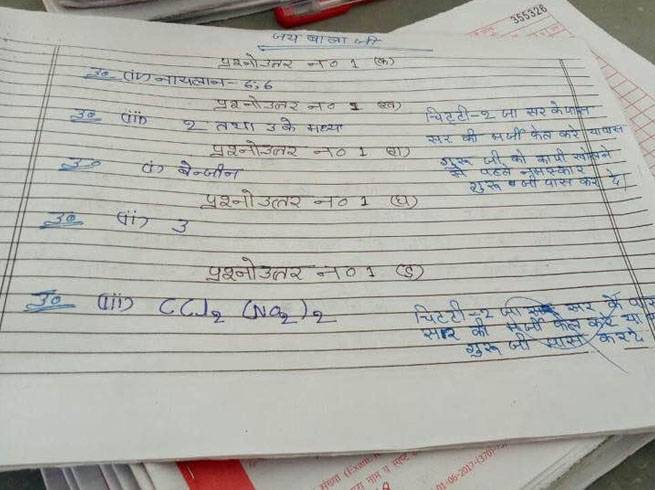 355326
जय बाला जी
प्रश्नोउत्तर न० 1 (क)
उ० (iv) नायलान - 6,6
प्रश्नोउत्तर न० 1 (ख)
उ० (iii) 2 तथा 3 के मध्य
प्रश्नोउत्तर न० 1 (ग)
उ० (i) बेन्जीन
प्रश्नोउत्तर न० 1 (घ)
उ० (ii) 3
प्रश्नोउत्तर न० 1 (ङ)
उ० (iii) CCl2 (NO2)2
चिटटी-2 जा सर के पास
सर की मर्जी फेल करे या पास
गुरू जी को कापी खोलने
से पहले नमस्कार
गुरू जी पास कर दे
चिटटी-2 जा सर के पास
सर की मर्जी फेल करे या
गुरू जी पास करदे